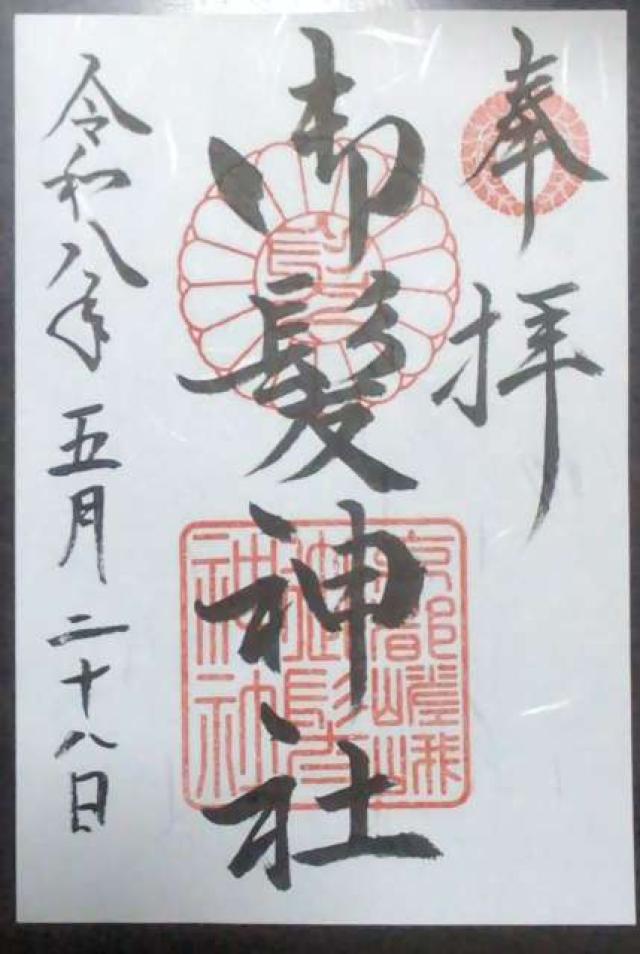 奉拝
御髪神社
京都嵯峨
御髪
神社
令和八年五月二十八日